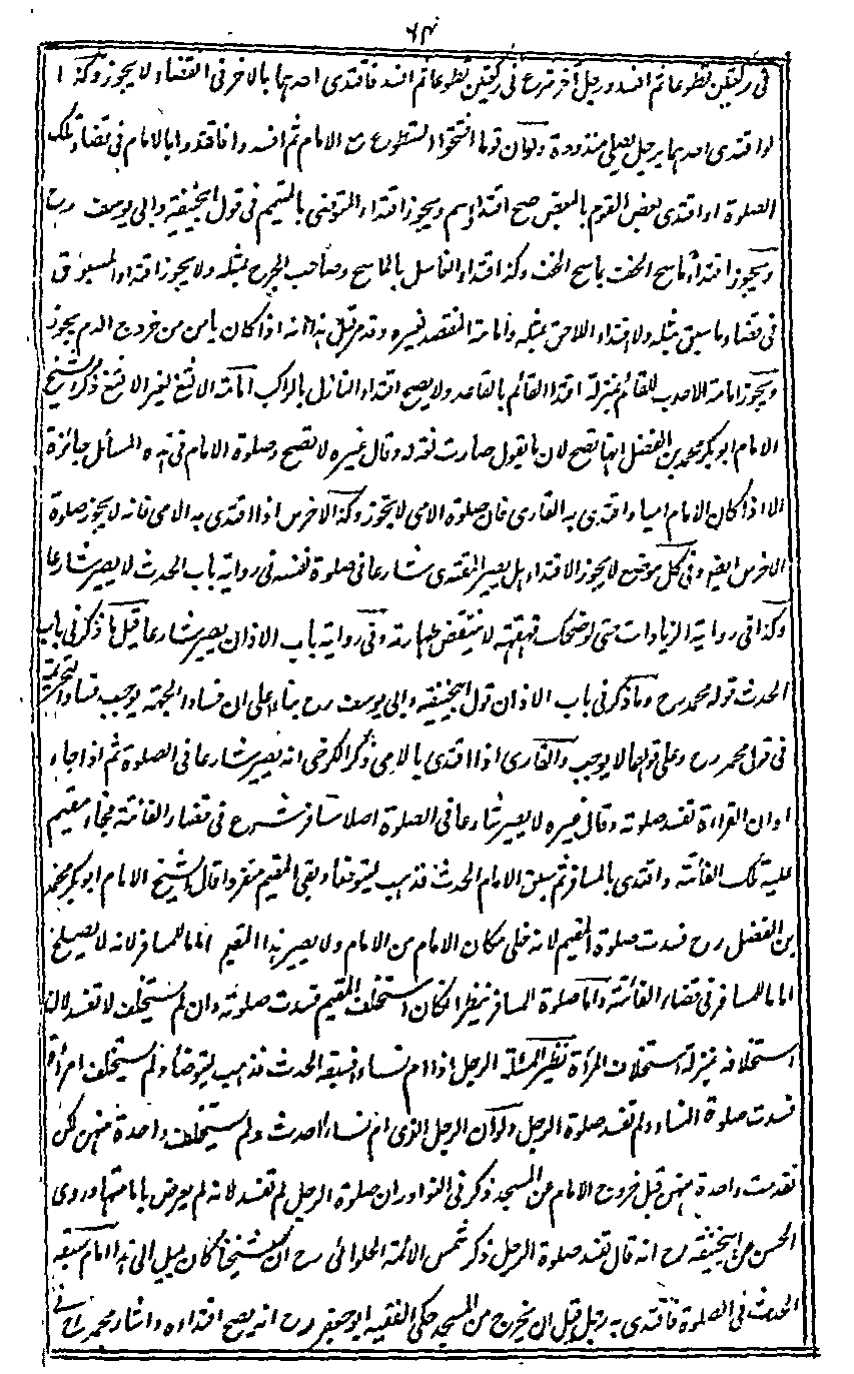 ٦٤
في ركعتين تطوعا ثم افسد ورجل آخر شرع في ركعتين تطوعا ثم افسد فاقتدى احدهما بالآخر في القضاء لا يجوز وكذا
لو اقتدى احدهما برجل يصلي منذورة ولو ان قوما افتتحوا التطوع مع الامام ثم افسدوا فاقتدوا بالامام في قضاء تلك
الصلوة او اقتدى بعض القوم بالبعض صح اقتداؤهم ويجوز اقتداء المتوضي بالمتيمم في قول ابيحنيفة وابي يوسف رح
ويجوز اقتداء ماسح الخف بماسح الخف وكذا اقتداء الغاسل بالماسح وصاحب الجرح بمثله ولا يجوز اقتداء المسبوق
في قضاء ما سبق بمثله ولا اقتداء اللاحق بمثله وامامة المفتصد لغيره وقد مر قبل هذا انه اذا كان يأمن من خروج الدم يجوز
ويجوز امامة الاحدب للقائم بمنزلة اقتداء القائم بالقاعد ولا يصح اقتداء النازل بالراكب امامة الالثغ لغير الالثغ ذكر الشيخ
الامام ابو بكر محمد بن الفضل انها تصح لان ما يقول صارت لغة له وقال غيره لا تصح وصلوة الامام في هذه المسائل جائزة
الا اذا كان الامام اميا واقتدى به القارى فان صلوة الامى لا تجوز وكذا الاخرس اذا اقتدى به الامى فانه لا يجوز صلوة
الاخرس ايضا وفي كل موضع لا يجوز الاقتداء هل يصير المقتدى شارعا في صلوة نفسه في رواية باب الحدث لا يصير شارعا
وكذا في رواية الزيادات حتى لو ضحك قهقهة لا ينتقض طهارته وفي رواية باب الاذان يصير شارعا قيل ما ذكر في باب
الحدث قول محمد رح وما ذكر في باب الاذان قول ابيحنيفة وابي يوسف رح بناء على ان فساد الجهة يوجب فساد التحريمة
في قول محمد رح وعلى قولهما لا يوجب والقارى اذا اقتدى بالامى ذكر الكرخى انه يصير شارعا في الصلوة ثم اذا جاء
اوان القراءة تفسد صلوته وقال غيره لا يصير شارعا في الصلوة اصلا مسافر شرع في قضاء الفائتة فجاء مقيم
عليه تلك الفائتة واقتدى بالمسافر ثم سبق الامام الحدث فذهب ليتوضأ وبقي المقيم منفردا قال الشيخ الامام ابو بكر محمد
بن الفضل رح فسدت صلوة المقيم لانه خلى مكان الامام من الامام ولا يصير هذا المقيم اماما للمسافر لانه لا يصلح
اماما للمسافر في قضاء الفائتة واما صلوة المسافر ينظر ان كان استخلف المقيم فسدت صلوته وان لم يستخلف لا تفسد لان
استخلافه بمنزلة استخلاف المرأة نظير المسئلة الرجل اذا ام نساء فسبقه الحدث فذهب ليتوضأ ولم يستخلف امرأة
فسدت صلوة النساء ولم تفسد صلوة الرجل ولو ان الرجل الذى ام نساء احدث ولم يستخلف واحدة منهن لكن
تقدمت واحدة منهن قبل خروج الامام عن المسجد ذكر في النوادر ان صلوة الرجل لم تفسد لانه لم يعرض بامامتها وروى
الحسن عن ابيحنيفة رح انه قال تفسد صلوة الرجل ذكر شمس الائمة الحلوائي رح ان شيخنا كان يميل الى هذا امام سبقه
الحدث في الصلوة فاقتدى به رجل قبل ان يخرج من المسجد حكى الفقيه ابو جعفر رح انه يصح اقتداءه واشار محمد رح في